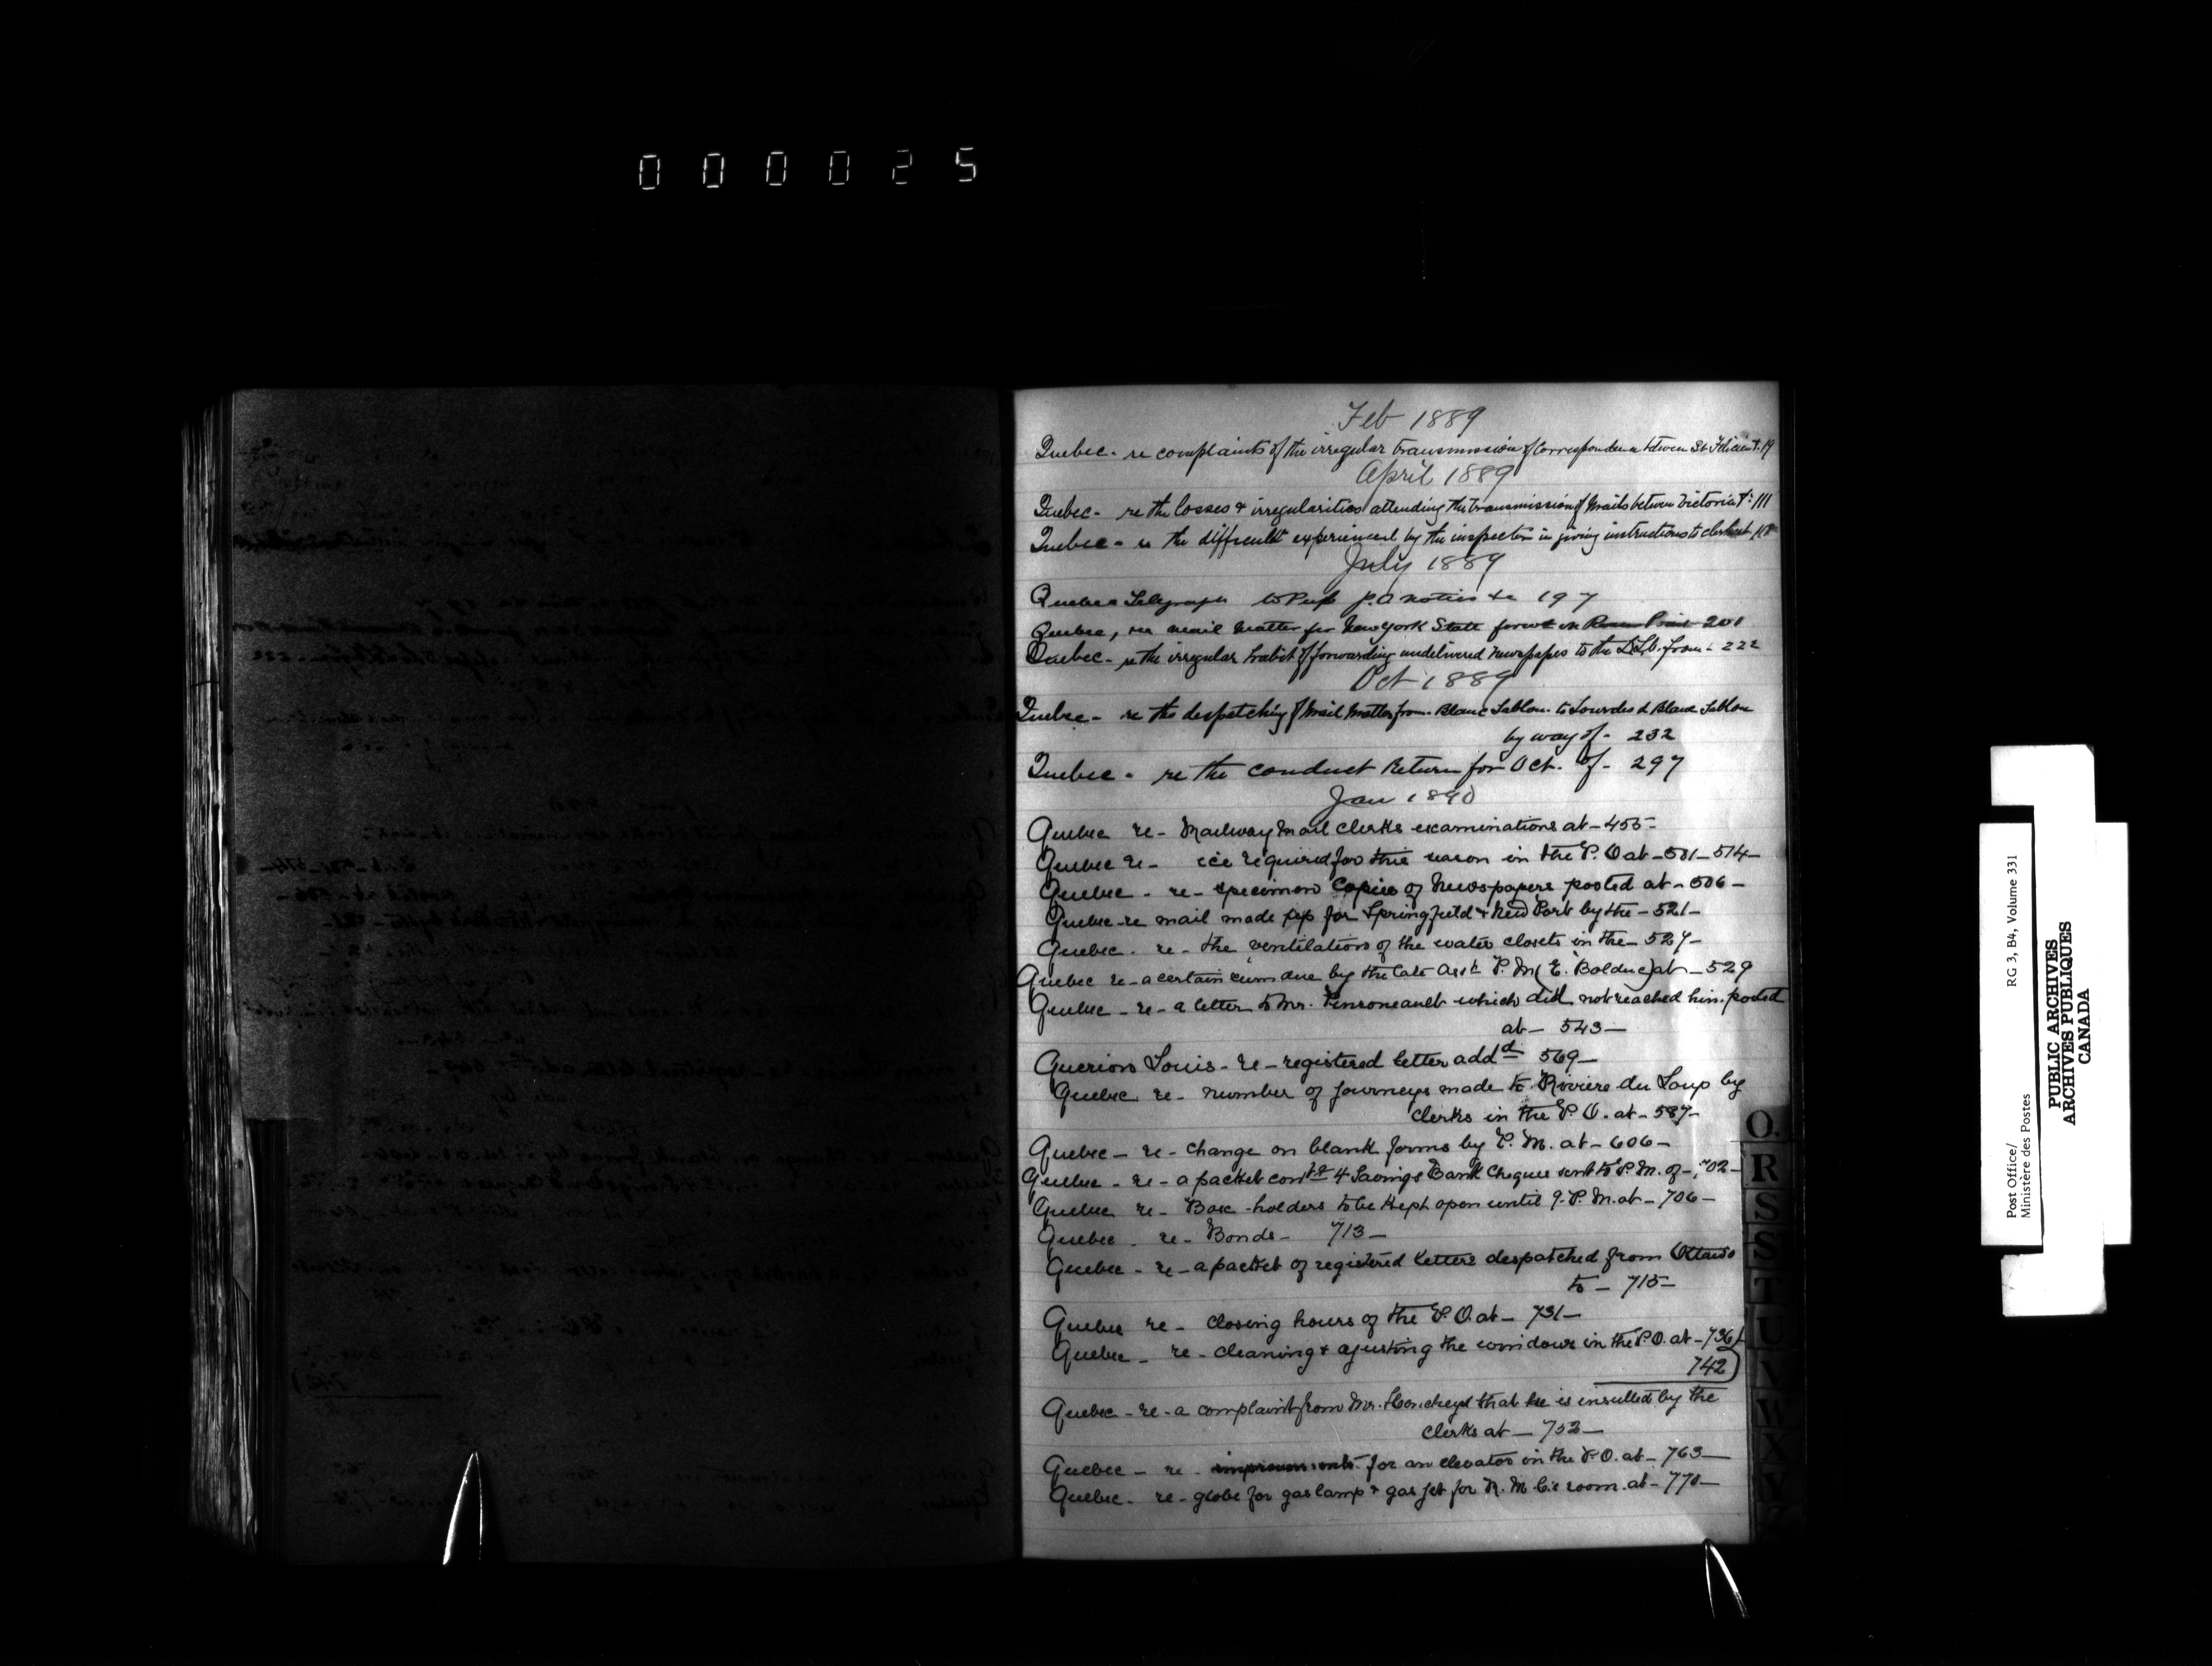 000025
Feb 1889
Quebec - re complaints of the irregular transmission of Correspondence between St Felicien &: 19
April 1889
Quebec - re the losses & irregularities attending the transmission of Mails between Victoria &: 111
Quebec - re the difficulty experienced by the inspector in giving instructions to clerks at
July 1889
Quebec Telegraph to Pub P.O notices &c 197
Quebec, re mail matter for New York State 201
Quebec - re the irregular habit of forwarding undelivered newspapers to the D.L.O. from - 222
Oct 1889
Quebec - re the despatching of Mail Matter from Blanc Sablon to Lourdes d Blanc Sablon
by way of - 232
Quebec - re the conduct Return for Oct. of - 297
Jan 1890
Quebec re - Railway Mail Clerks examinations at - 455 -
Quebec re - ice required for this season in the P.O at - 501 - 514 -
Quebec - re - specimen Copies of Newspapers posted at - 506 -
Quebec - re mail made up for Springfield & New York by the - 521 -
Quebec - re - the ventilation of the water closets in the - 527 -
Quebec re - a certain sum due by the late Asst P.M (E. Bolduc) at - 529
Quebec - re - a letter to Mr. Pinsoneault which did not reached him. posted
at - 543 -
Querion Louis - re - registered letter addd 569 -
Quebec re - number of journeys made to Riviere du Loup by
clerks in the P.O. at - 587 -
Quebec - re - change on blank forms by P.M. at - 606 -
Quebec - re - a packet contg 4 Savings Bank Cheques sent to P.M. of - 702 -
Quebec re - Box - holders to be kept open until 9. P.M. at - 706 -
Quebec - re - Bonds - 713 -
Quebec - re - a packet of registered letters despatched from Ottawa
to - 715 -
Quebec re - closing hours of the P.O. at - 731 -
Quebec - re - cleaning & ajusting the windows in the P.O. at - 736 }
742 }
Quebec - re - a complaint from Mr. that he is insulted by the
clerks at - 753 -
Quebec - re - for an elevator in the P.O. at - 763 -
Quebec - re - globe for gas lamp & gas jet for R. M. C.s room. at - 770 -
Q.
R
S
S
T
U
V
W
X
Y
Z
Post Office/
Ministère des Postes
RG 3, B4, Volume 331
PUBLIC ARCHIVES
ARCHIVES PUBLIQUES
CANADA